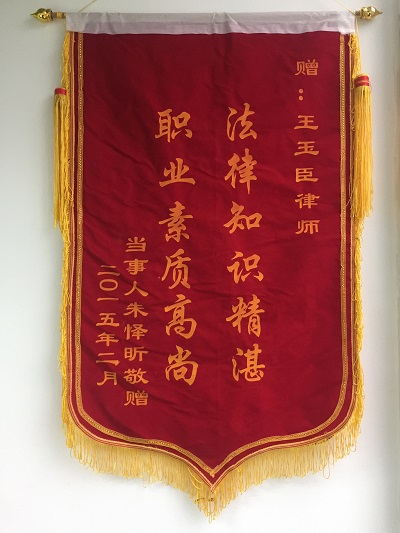 赠：王玉臣律师
法律知识精湛
职业素质高尚
当事人朱怿昕敬赠
二〇一五年二月